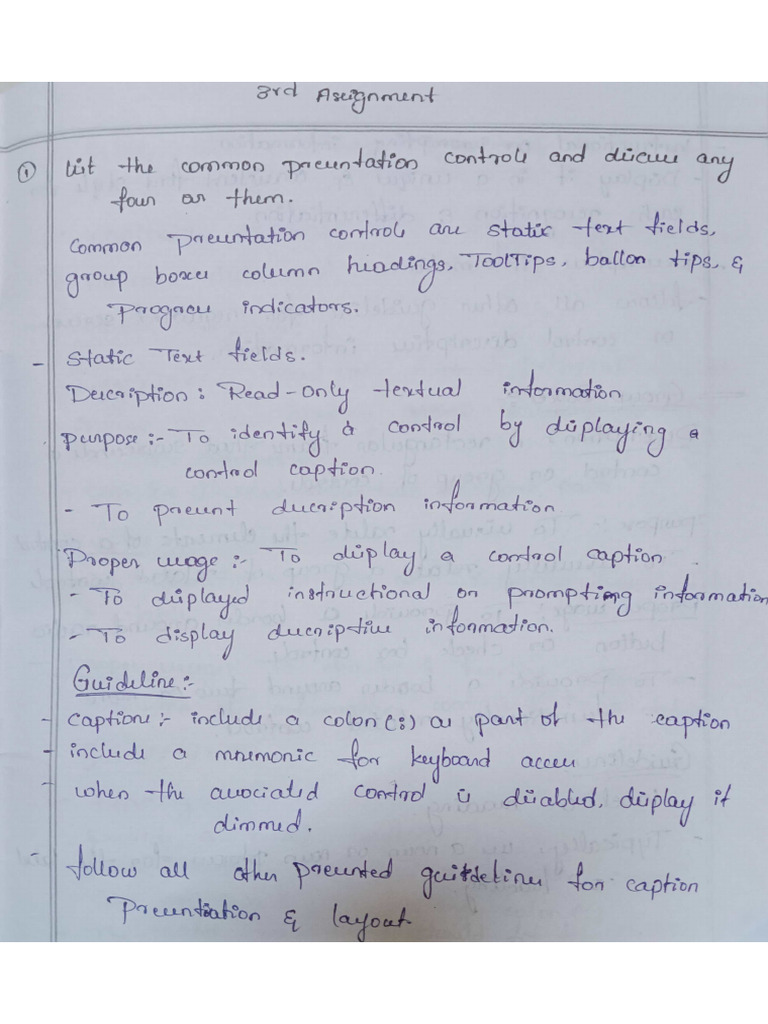 3rd Assignment
① List the common presentation controls and discuss any
four or them.
Common Presentation controls are static text fields,
group boxes column headings, ToolTips, ballon tips, &
Progress indicators.
- Static Text fields.
Description : Read-Only textual information
purpose :- To identify a control by displaying a
control caption.
- To present description information
Proper usage :- To display a control caption.
- To displayed instructional or prompting information
- To display descriptive information.
Guideline :-
- Captions :- include a colon (:) as part of the caption
- include a mnemonic for keyboard access
- when the associated control is disabled, display it
dimmed.
- follow all other presented guitdelines for caption
Presentation & layout.